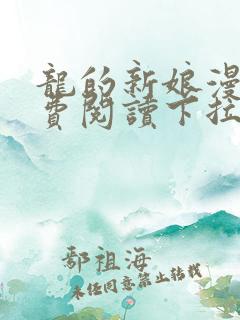 龍的新娘漫
費閱讀下拉
鄯祖海
未经同意禁止转载